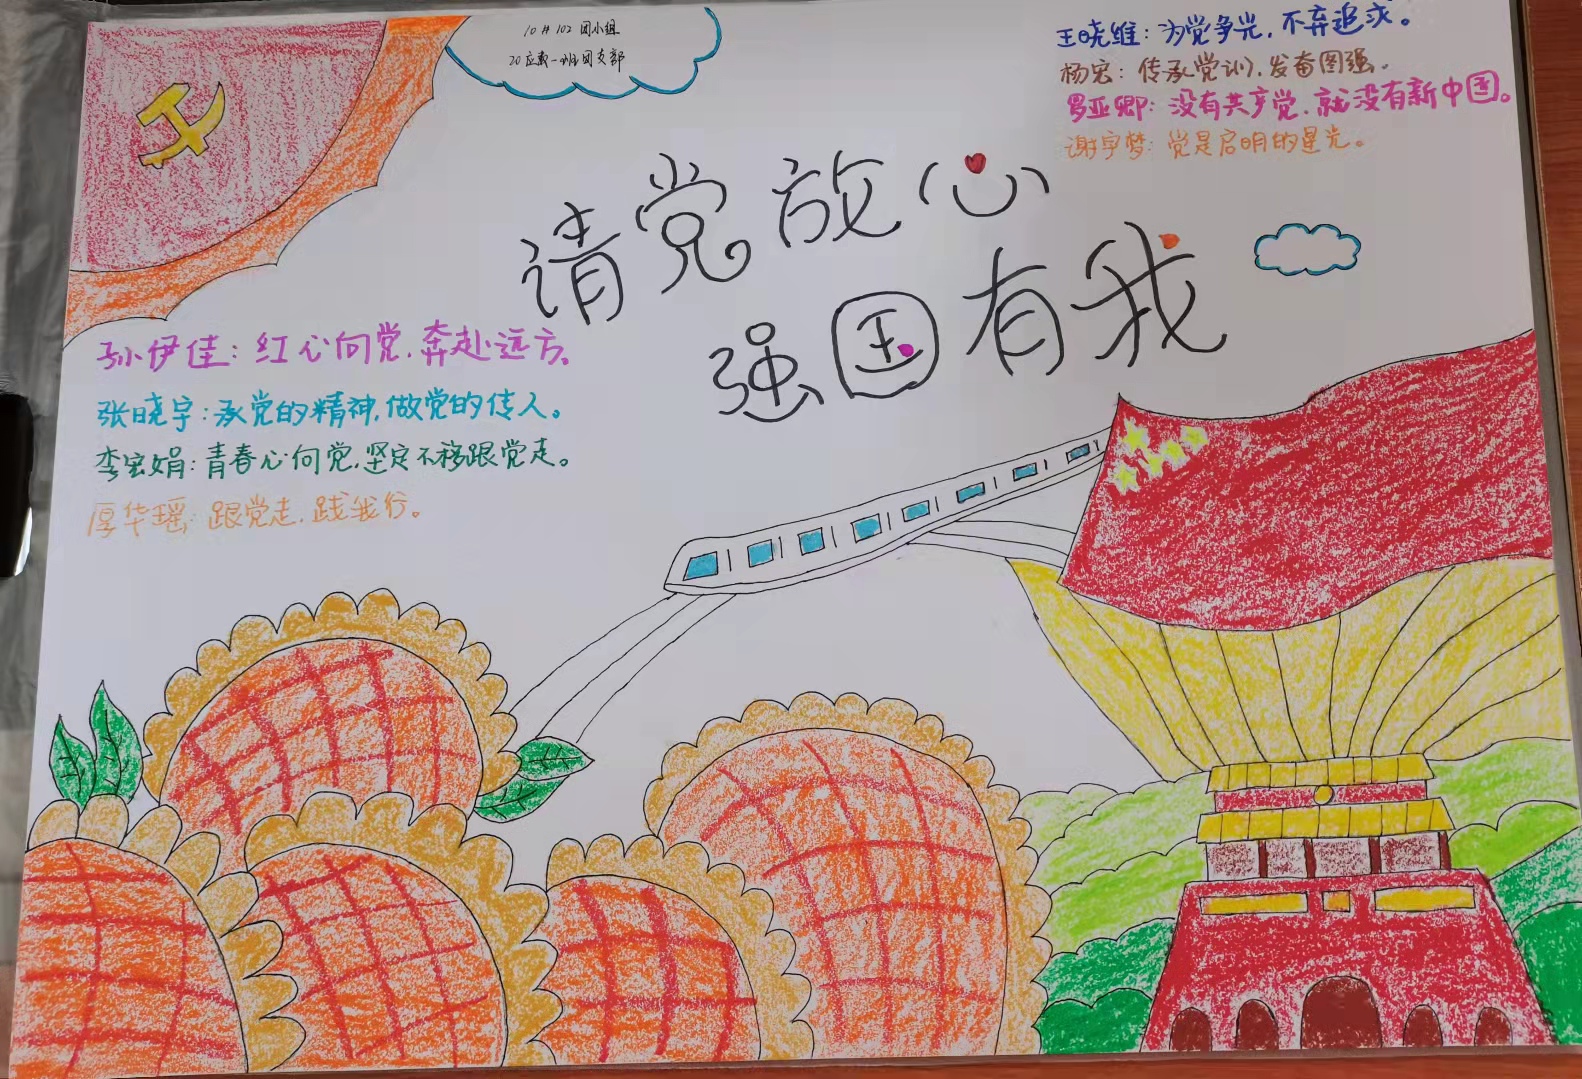 10#102 团小组
20应数一班团支部
王晓维：为党争光，不弃追求。
杨宏：传承党训，发奋图强。
罗亚卿：没有共产党，就没有新中国。
谢宇梦：党是启明的星光。
请党放心
强国有我
孙伊佳：红心向党，奔赴远方。
张晓宇：承党的精神，做党的传人。
李宏娟：青春心向党，坚定不移跟党走。
厚华瑶：跟党走，践我行。